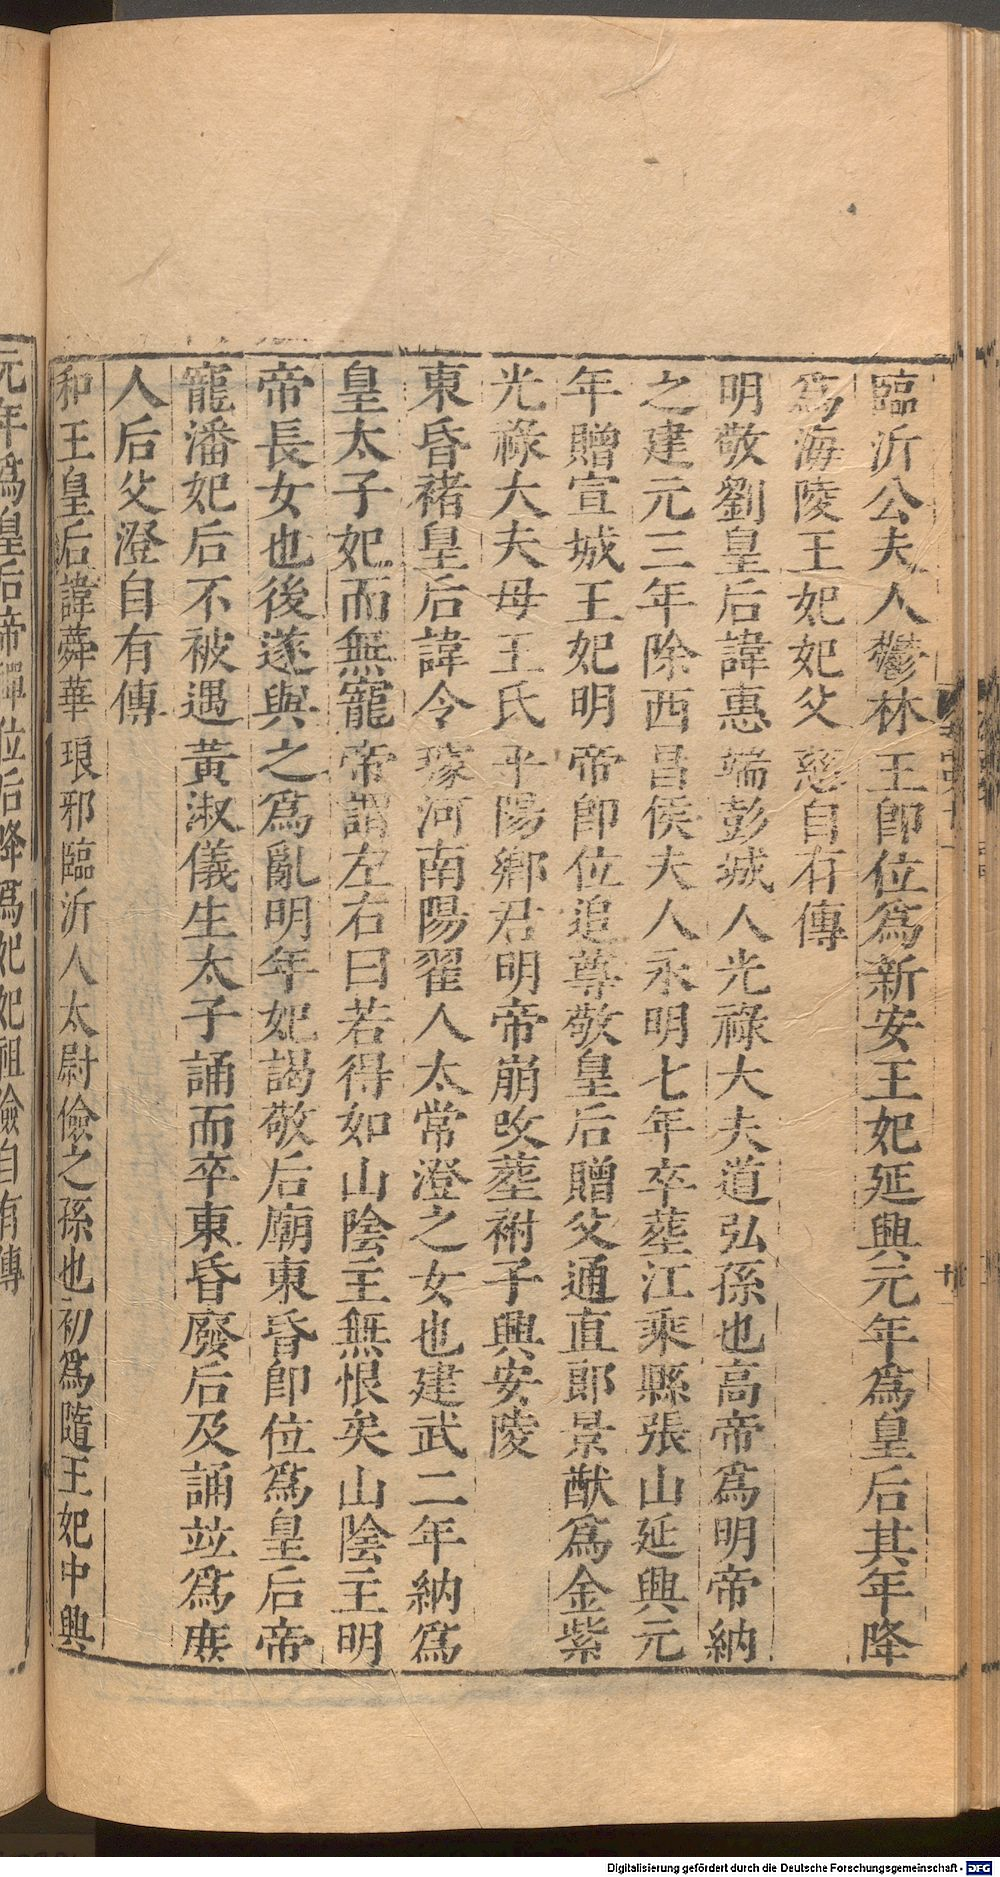 臨沂公夫人鬱林王卽位爲新安王妃延興元年爲皇后其年降
爲海陵王妃妃父慈自有傳
明敬劉皇后諱惠端彭城人光祿大夫道弘孫也高帝爲明帝納
之建元三年除西昌侯夫人永明七年卒葬江乘縣張山延興元
年贈宣城王妃明帝卽位追尊敬皇后贈父通直郎景猷爲金紫
光祿大夫母王氏平陽鄉君明帝崩改葬祔子興安陵
東昏褚皇后諱令璩河南陽翟人太常澄之女也建武二年納爲
皇太子妃而無寵帝謂左右曰若得如山陰主無恨矣山陰主明
帝長女也後遂與之爲亂明年妃謁敬后廟東昏卽位爲皇后帝
寵潘妃后不被遇黃淑儀生太子誦而卒東昏廢后及誦竝爲庶
人后父澄自有傳
和王皇后諱蕣華琅邪臨沂人太尉儉之孫也初爲隨王妃中興
元年爲皇后帝禪位后降爲妃妃祖儉自有傳
Digitalisierung gefördert durch die Deutsche Forschungsgemeinschaft - DFG